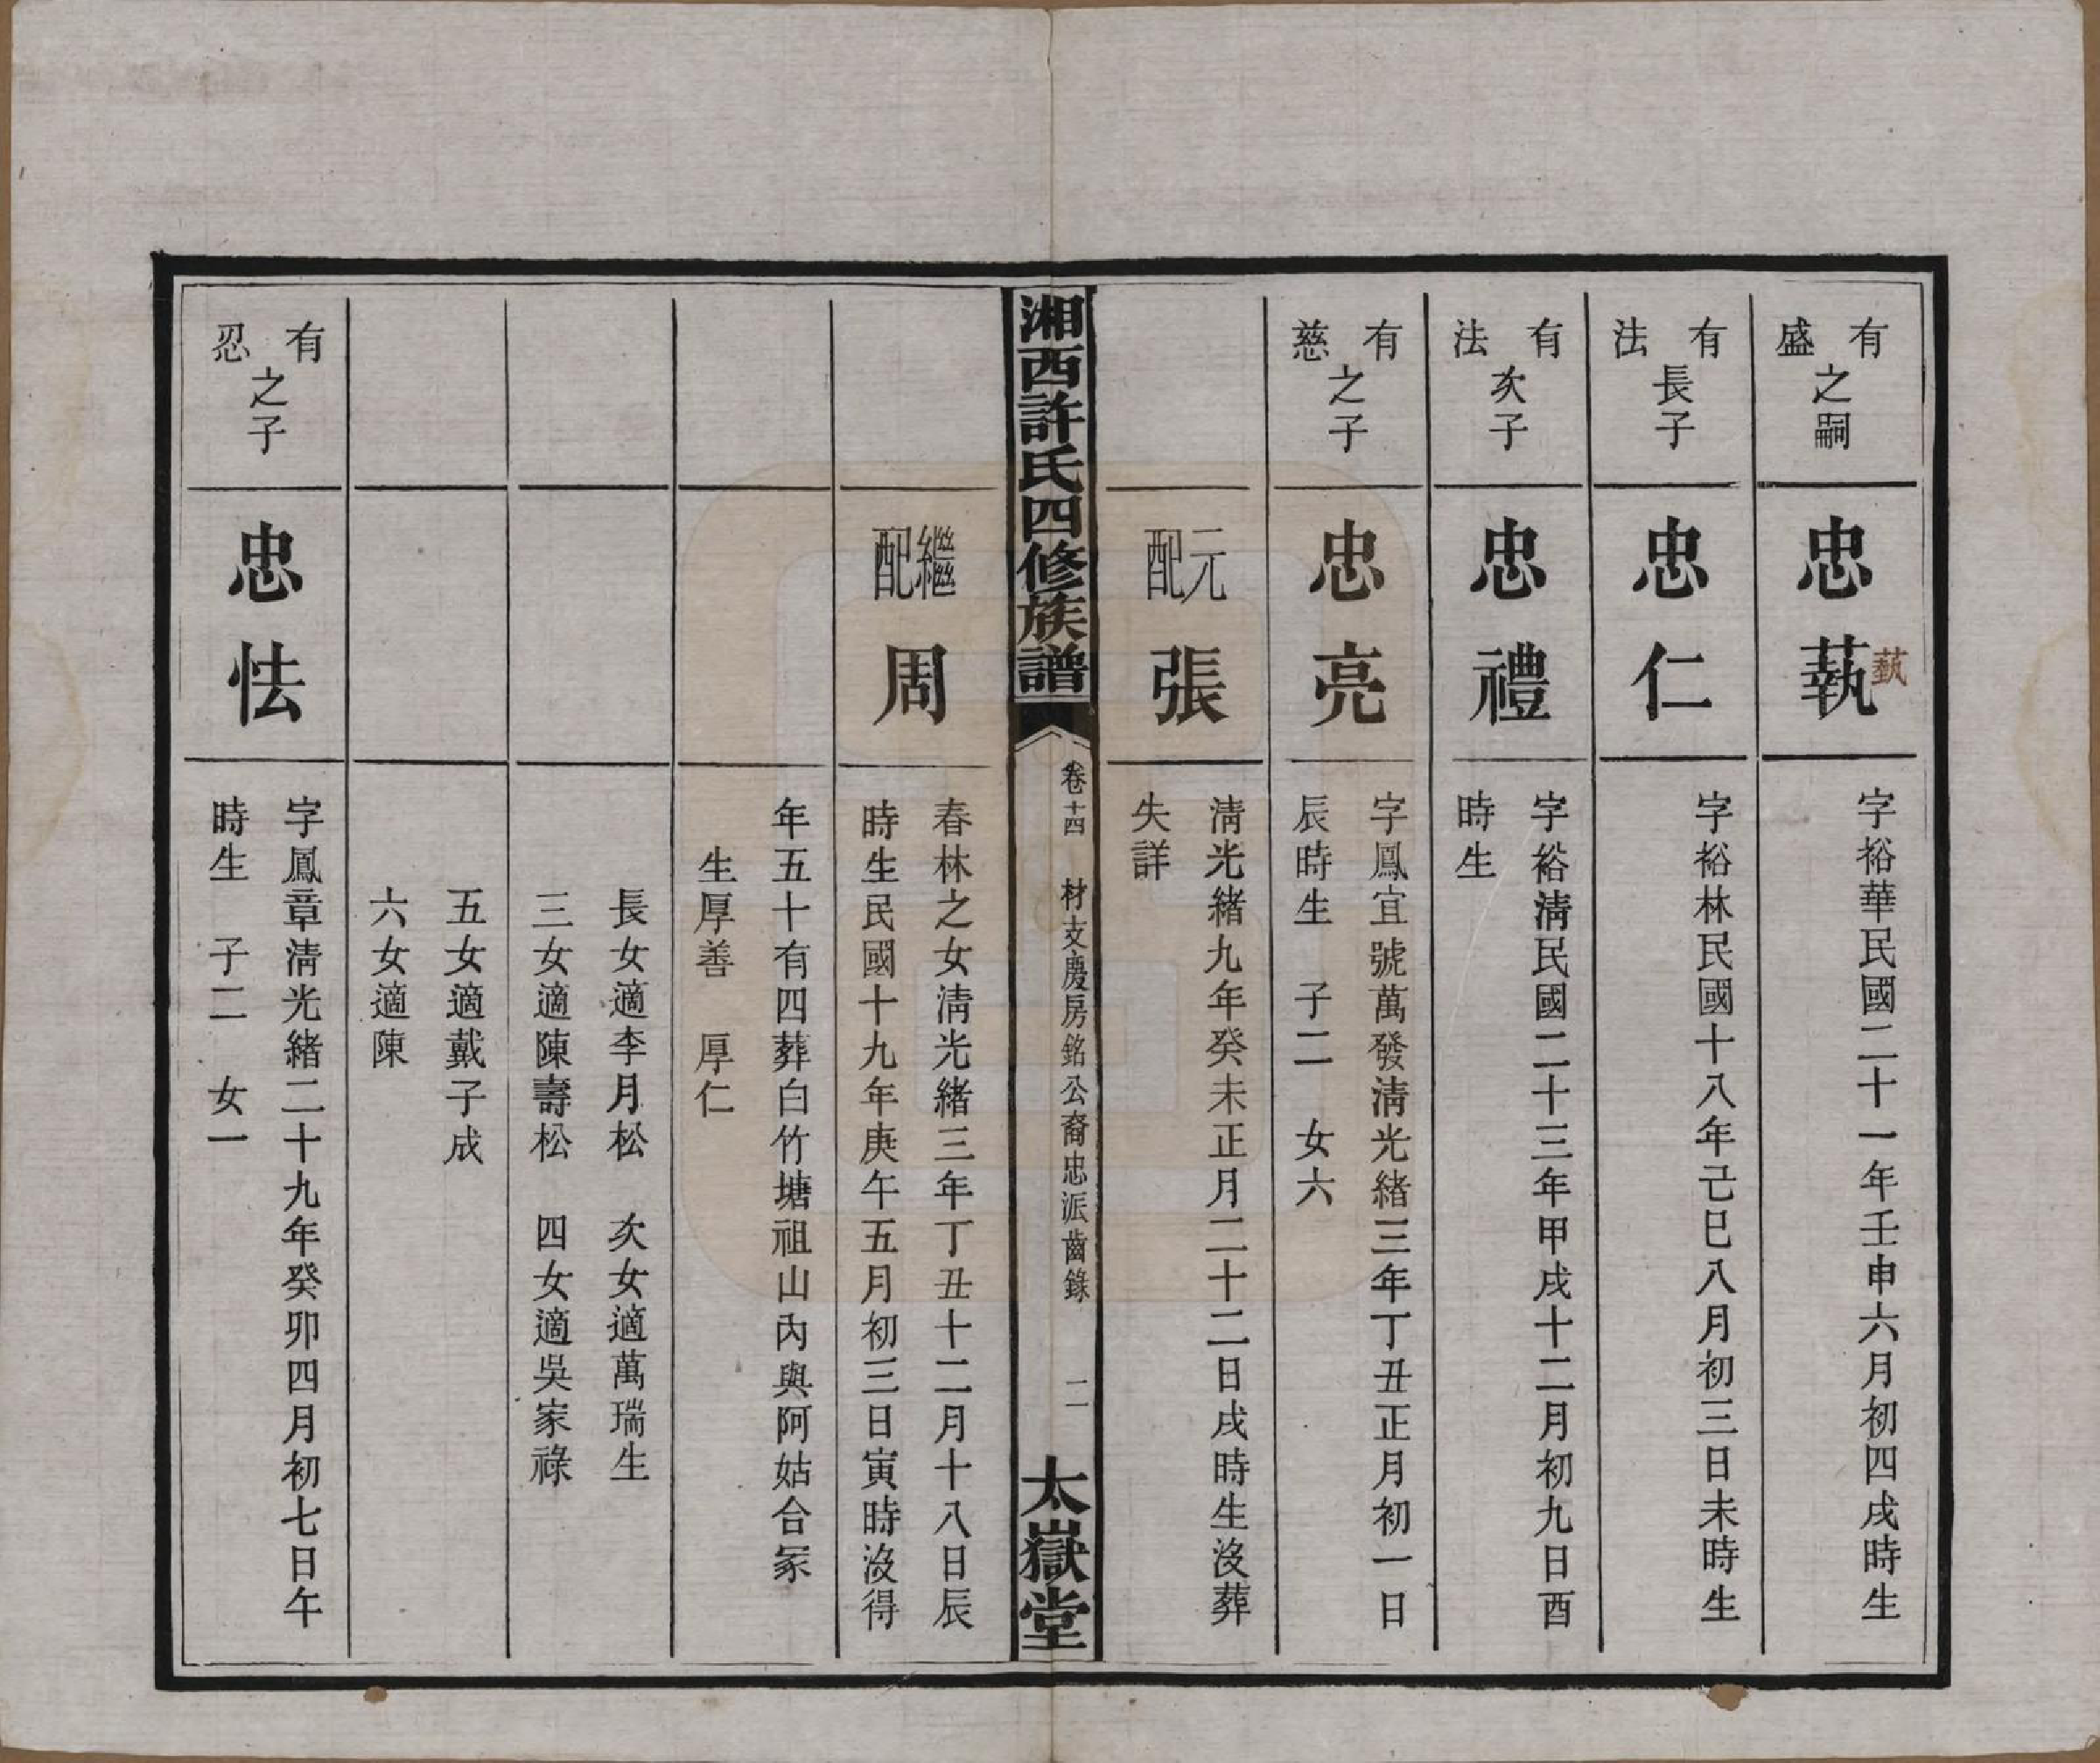 有盛之嗣
忠蓺
藝
字裕華民國二十一年壬申六月初四戌時生
有法長子
忠仁
字裕林民國十八年己巳八月初三日未時生
有法次子
忠禮
字裕清民國二十三年甲戌十二月初九日酉
時生
有慈之子
忠亮
字鳳宜號萬發清光緒三年丁丑正月初一日
辰時生　子二　女六
元配
張
清光緒九年癸未正月二十二日戌時生沒葬
失詳
湘西許氏四修族譜
卷十四　材支慶房銘公裔忠派齒錄　二
太嶽堂
繼配
周
春林之女清光緒三年丁丑十二月十八日辰
時生民國十九年庚午五月初三日寅時沒得
年五十有四葬白竹塘祖山內與阿姑合冢
生厚善　厚仁
長女適李月松　次女適萬瑞生
三女適陳壽松　四女適吳家祿
五女適戴子成
六女適陳
有忍之子
忠怯
字鳳章清光緒二十九年癸卯四月初七日午
時生　子二　女一